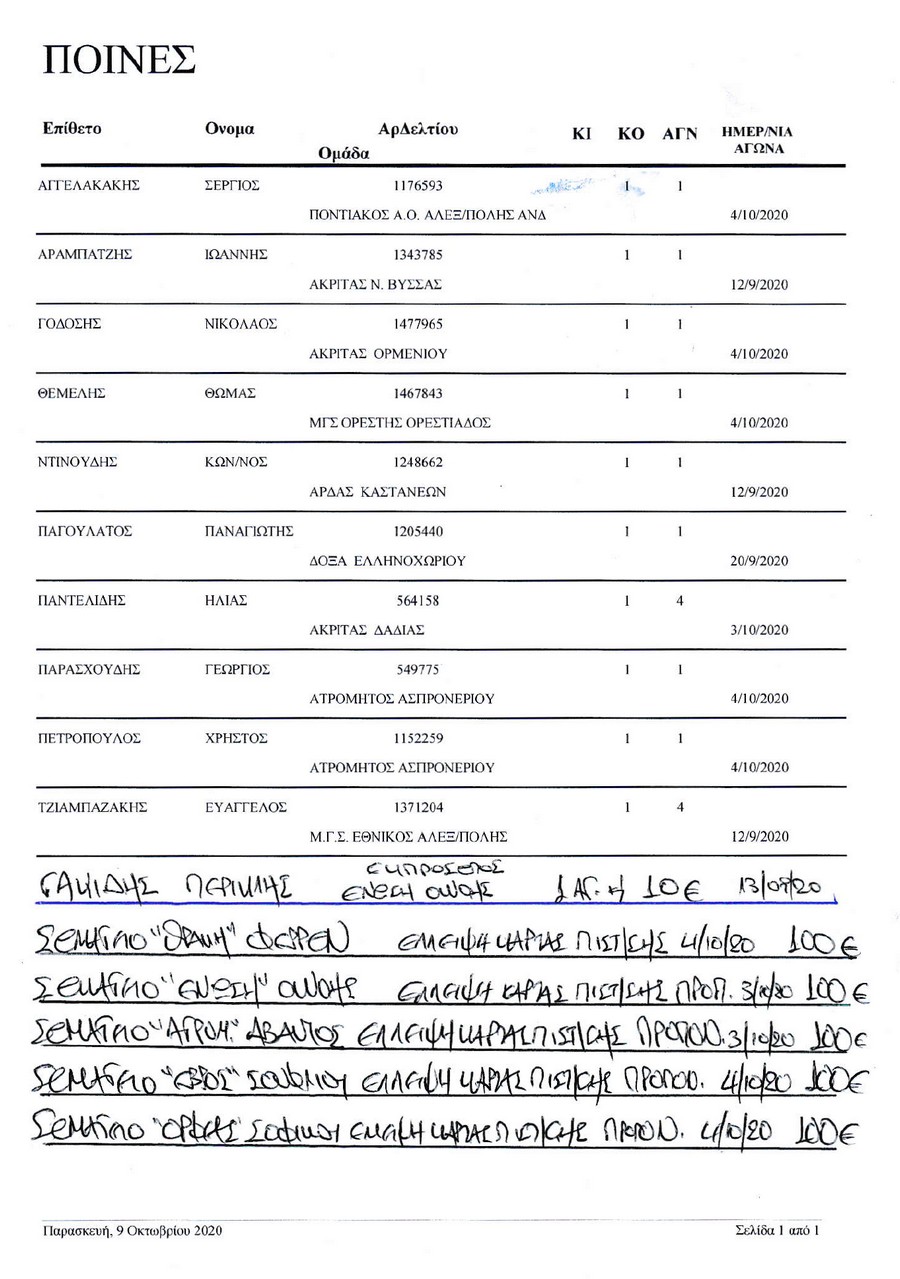 ΠΟΙΝΕΣ
Επίθετο Ονομα ΑρΔελτίου ΚΙ ΚΟ ΑΓΝ ΗΜΕΡ/ΝΙΑ ΑΓΩΝΑ
Ομάδα
ΑΓΓΕΛΑΚΑΚΗΣ ΣΕΡΓΙΟΣ 1176593 1 1
ΠΟΝΤΙΑΚΟΣ Α.Ο. ΑΛΕΞ/ΠΟΛΗΣ ΑΝΔ 4/10/2020
ΑΡΑΜΠΑΤΖΗΣ ΙΩΑΝΝΗΣ 1343785 1 1
ΑΚΡΙΤΑΣ Ν. ΒΥΣΣΑΣ 12/9/2020
ΓΟΔΟΣΗΣ ΝΙΚΟΛΑΟΣ 1477965 1 1
ΑΚΡΙΤΑΣ ΟΡΜΕΝΙΟΥ 4/10/2020
ΘΕΜΕΛΗΣ ΘΩΜΑΣ 1467843 1 1
ΜΓΣ ΟΡΕΣΤΗΣ ΟΡΕΣΤΙΑΔΟΣ 4/10/2020
ΝΤΙΝΟΥΔΗΣ ΚΩΝ/ΝΟΣ 1248662 1 1
ΑΡΔΑΣ ΚΑΣΤΑΝΕΩΝ 12/9/2020
ΠΑΓΟΥΛΑΤΟΣ ΠΑΝΑΓΙΩΤΗΣ 1205440 1 1
ΔΟΞΑ ΕΛΛΗΝΟΧΩΡΙΟΥ 20/9/2020
ΠΑΝΤΕΛΙΔΗΣ ΗΛΙΑΣ 564158 1 4
ΑΚΡΙΤΑΣ ΔΑΔΙΑΣ 3/10/2020
ΠΑΡΑΣΧΟΥΔΗΣ ΓΕΩΡΓΙΟΣ 549775 1 1
ΑΤΡΟΜΗΤΟΣ ΑΣΠΡΟΝΕΡΙΟΥ 4/10/2020
ΠΕΤΡΟΠΟΥΛΟΣ ΧΡΗΣΤΟΣ 1152259 1 1
ΑΤΡΟΜΗΤΟΣ ΑΣΠΡΟΝΕΡΙΟΥ 4/10/2020
ΤΖΙΑΜΠΑΖΑΚΗΣ ΕΥΑΓΓΕΛΟΣ 1371204 1 4
Μ.Γ.Σ. ΕΘΝΙΚΟΣ ΑΛΕΞ/ΠΟΛΗΣ 12/9/2020
ΕΚΠΡΟΣΩΠΟΣ
ΠΕΡΙΚΛΗΣ ΕΝΩΣΗ 1 ΑΓ. ή 10€
ΣΩΜΑΤΕΙΟ "ΘΡΑΚΗ" ΦΕΡΡΩΝ ΕΛΛΕΙΨΗ ΚΑΡΤΑΣ ΠΙΣΤ/ΣΗΣ 4/10/20 100€
ΣΩΜΑΤΕΙΟ "ΕΝΩΣΗ" ΕΛΛΕΙΨΗ ΚΑΡΤΑΣ ΠΙΣΤ/ΣΗΣ ΠΡΟΠ. 3/10/20 100€
ΣΩΜΑΤΕΙΟ "ΑΤΡΟΜ." ΑΒΑΝΤΟΣ ΕΛΛΕΙΨΗ ΚΑΡΤΑΣ ΠΙΣΤ/ΣΗΣ ΠΡΟΠΟΝ. 3/10/20 100€
ΣΩΜΑΤΕΙΟ "ΕΒΡΟΣ" ΣΟΥΦΛΙΟΥ ΕΛΛΕΙΨΗ ΚΑΡΤΑΣ ΠΙΣΤ/ΣΗΣ ΠΡΟΠΟΝ. 4/10/20 100€
ΣΩΜΑΤΕΙΟ ΕΛΛΕΙΨΗ ΚΑΡΤΑΣ ΠΙΣΤ/ΣΗΣ ΠΡΟΠΟΝ. 4/10/20 100€
Παρασκευή, 9 Οκτωβρίου 2020 Σελίδα 1 από 1